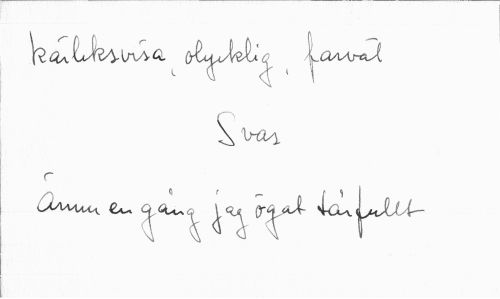 kärleksvisa, olycklig, farväl
Svar
Ännu en gång jag ögat tårfullt